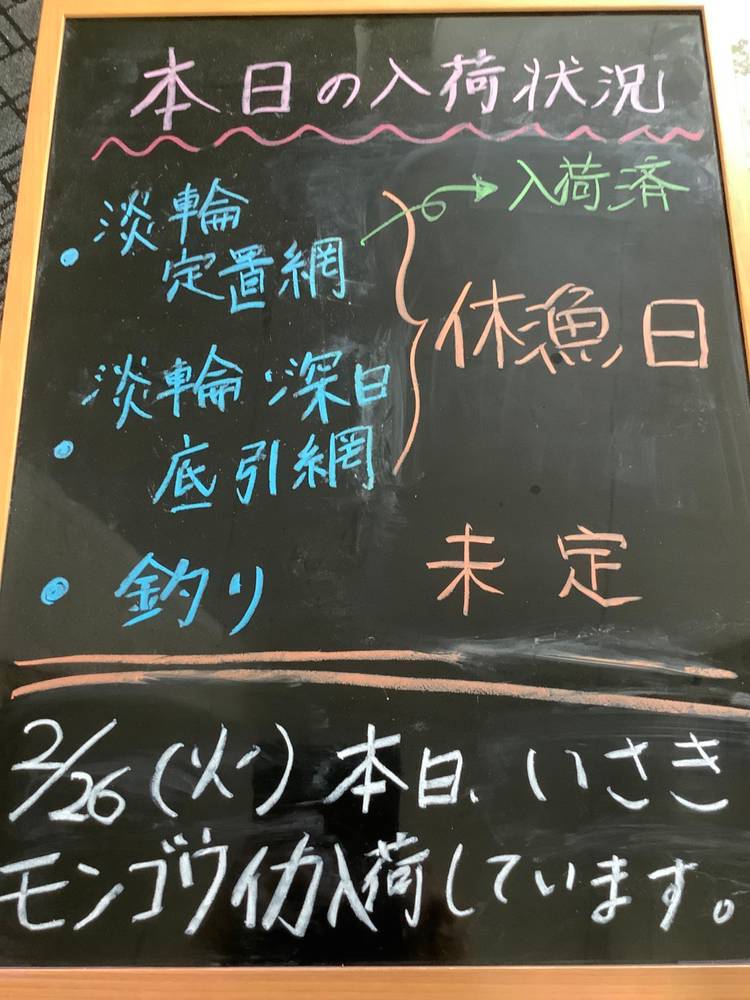 本日の入荷状況
・淡輪 定置網 → 入荷済
・淡輪・深日 底引網
休漁日
・釣り 未定
2/26(火)本日、いさき
モンゴウイカ入荷しています。